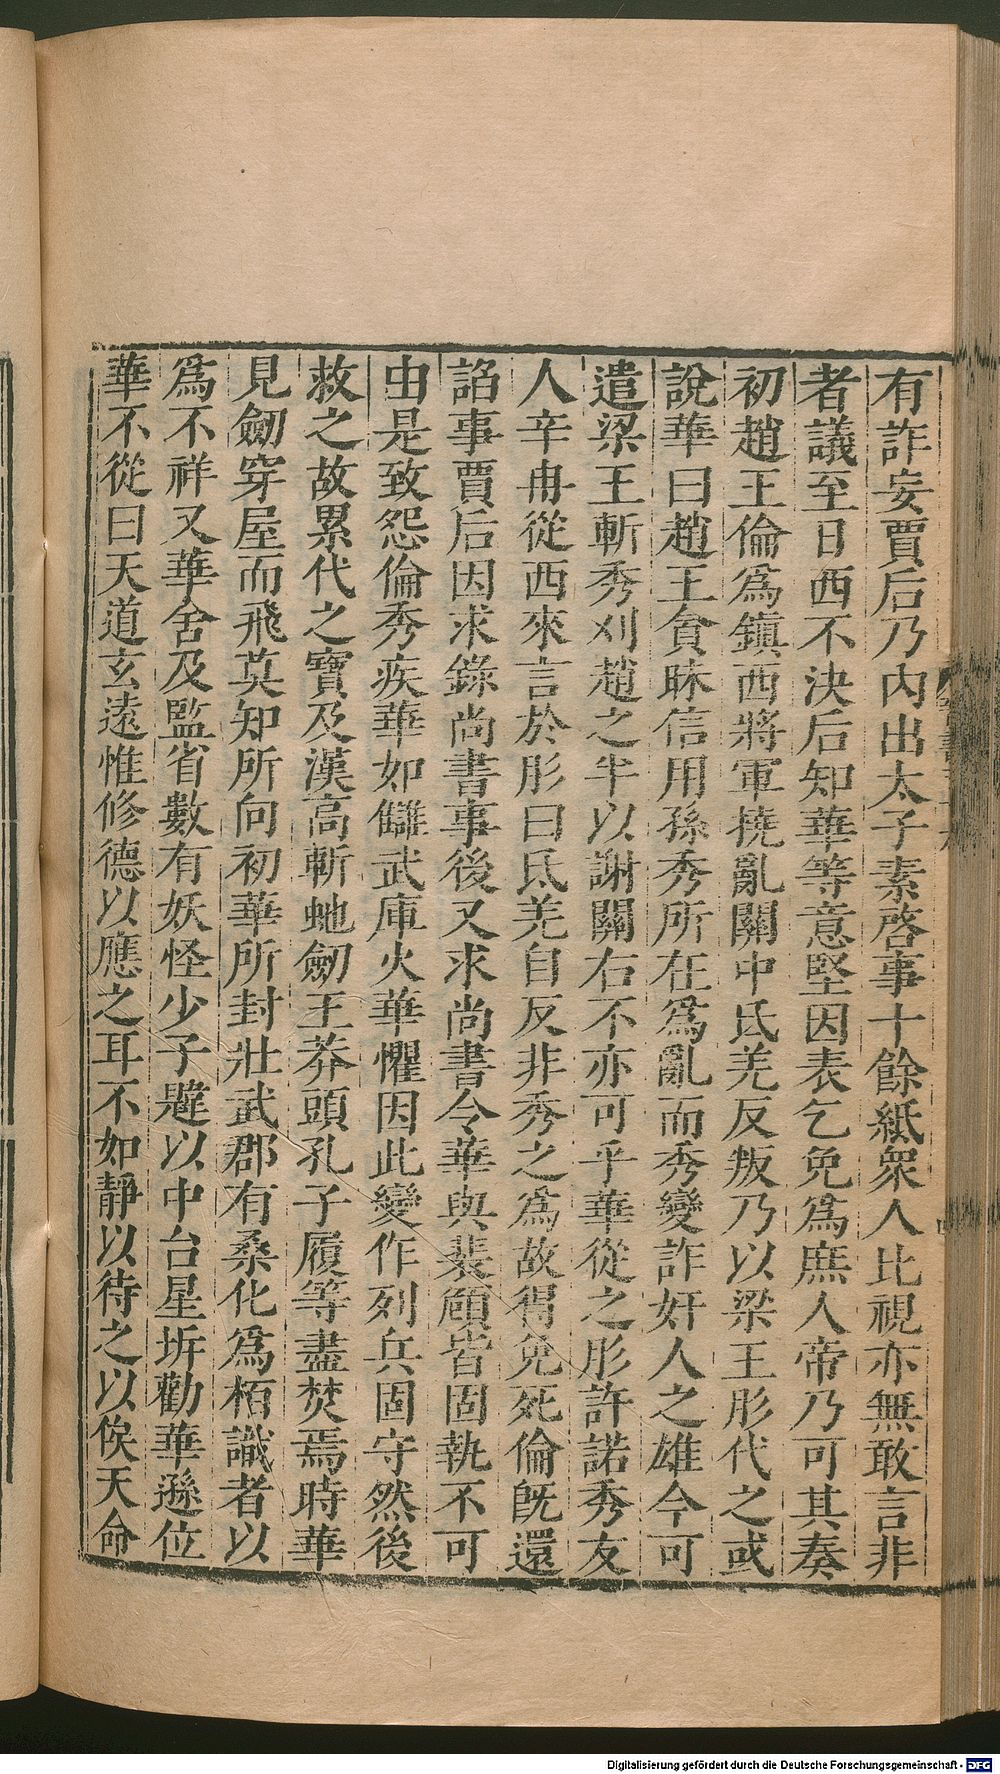 有詐妄賈后乃內出太子素啓事十餘紙眾人比視亦無敢言非
者議至日西不決后知華等意堅因表乞免爲庶人帝乃可其奏
初趙王倫爲鎮西將軍撓亂關中氐羌反叛乃以梁王肜代之或
說華曰趙王貪昧信用孫秀所在爲亂而秀變詐奸人之雄今可
遣梁王斬秀刈趙之半以謝關右不亦可乎華從之肜許諾秀友
人辛冉從西來言於肜曰氐羌自反非秀之爲故得免死倫旣還
諂事賈后因求錄尚書事後又求尚書令華與裴頠皆固執不可
由是致怨倫秀疾華如讎武庫火華懼因此變作列兵固守然後
救之故累代之寶及漢高斬虵劒王莽頭孔子履等盡焚焉時華
見劒穿屋而飛莫知所向初華所封壯武郡有桑化爲栢識者以
爲不祥又華舍及監省數有妖怪少子韙以中台星坼勸華遜位
華不從曰天道玄遠惟修德以應之耳不如靜以待之以俟天命
Digitalisierung gefördert durch die Deutsche Forschungsgemeinschaft - DFG